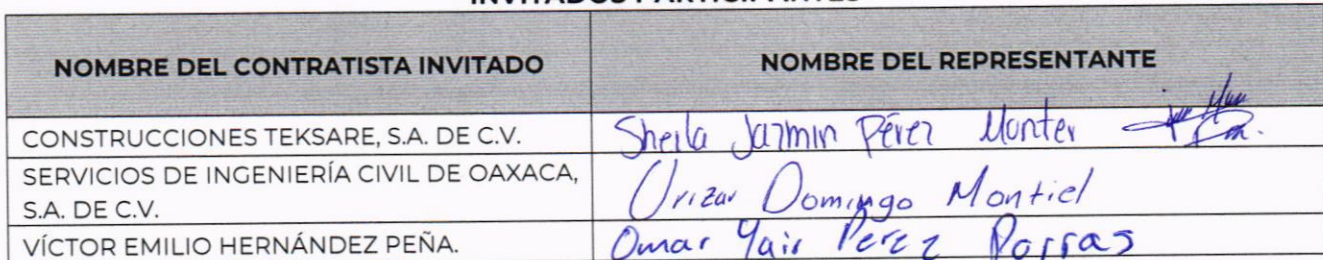 INVITADOS PARTICIPANTES
NOMBRE DEL CONTRATISTA INVITADO
NOMBRE DEL REPRESENTANTE
CONSTRUCCIONES TEKSARE, S.A. DE C.V.
Sheila Jazmin Pérez Monter
SERVICIOS DE INGENIERÍA CIVIL DE OAXACA,
S.A. DE C.V.
Urizar Domingo Montiel
VÍCTOR EMILIO HERNÁNDEZ PEÑA.
Omar Yair Perez Porras